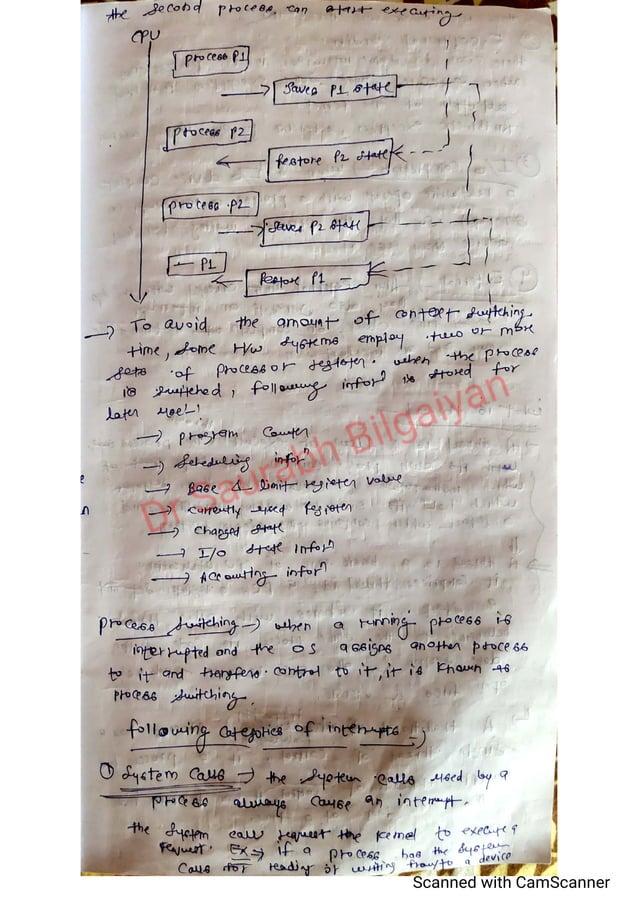 the second process can start executing.
CPU
process P1
saves P1 state
process P2
Restore P2 state
process P2
saves P2 state
— P1
Restore P1 —
→ To avoid the amount of context switching
time, some H/w systems employ two or more
sets of processor register. when the process
is switched, following inforⁿ is stored for
later use:-
→ program counter
→ scheduling inforⁿ
→ Base & limit register value
→ currently used register
→ changed state
→ I/O state inforⁿ
→ Accounting inforⁿ
process switching → when a running process is
interrupted and the OS assigns another process
to it and transfers control to it, it is known as
process switching.
following categories of interrupts :-
① System calls → the system calls used by a
process always cause an interrupt.
the system call request the kernel to execute a
request. Ex → if a process has the system
calls for reading or writing from/to a device
Dr Saurabh Bilgaiyan
Scanned with CamScanner